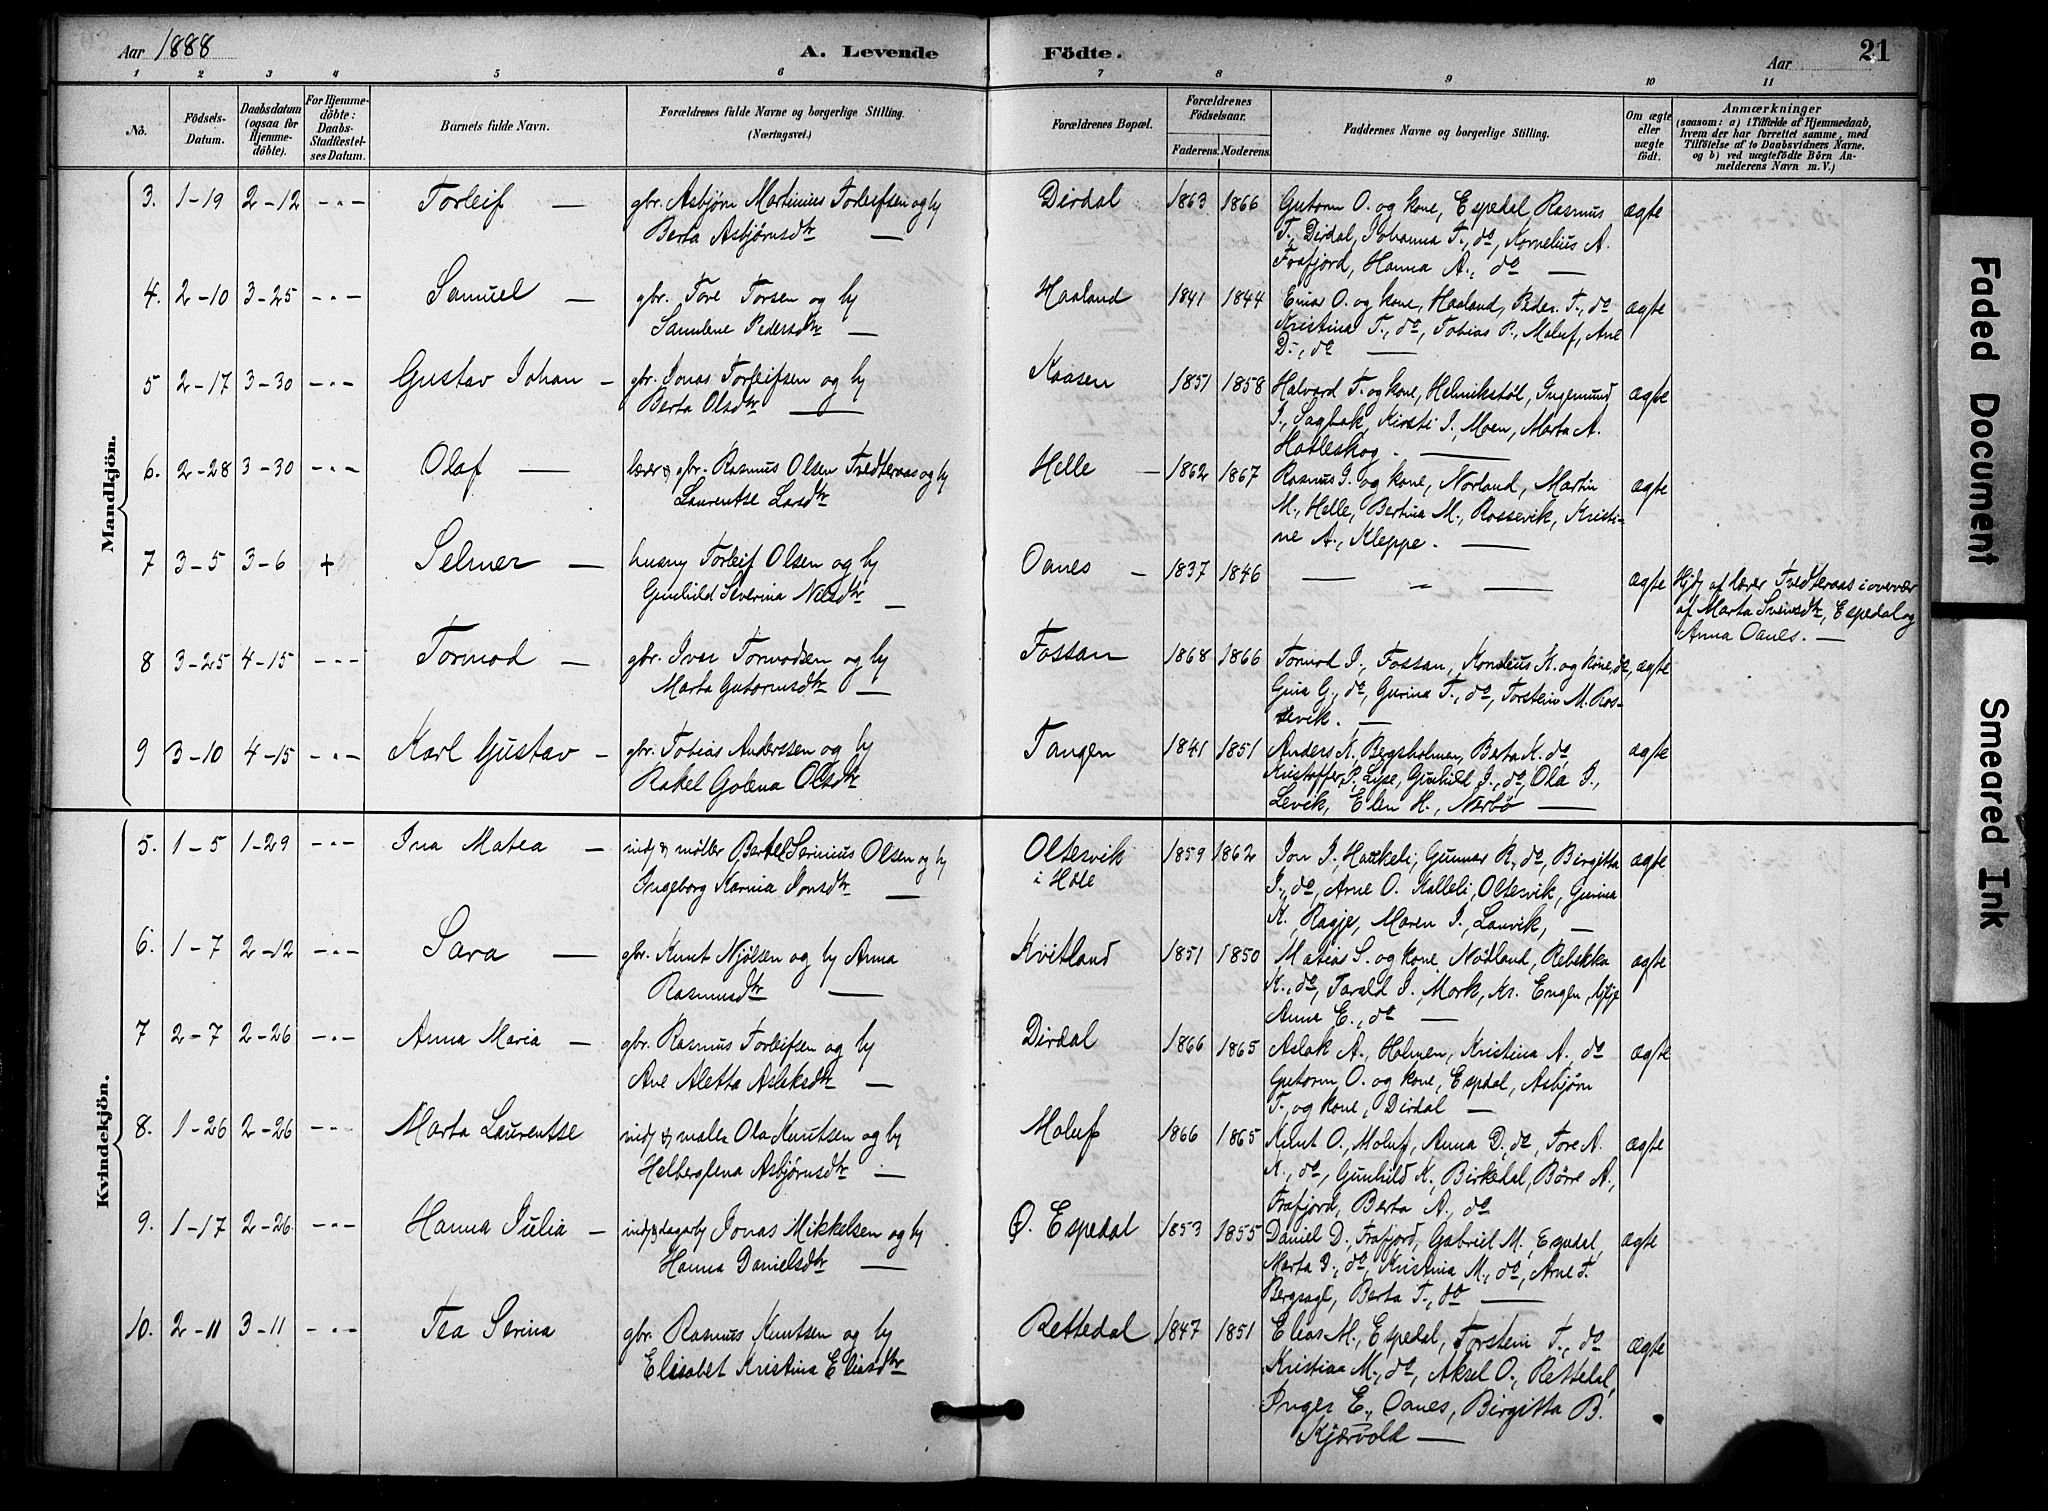 Aar 1888
A. Levende
Födte.
Aar
21
1 2 3 4 5 6 7 8 9 10 11
No.
Födsels-
Datum.
Daabsdatum
(ogsaa for
Hjemme-
döbte).
For Hjemme-
döbte:
Daabs-
Stadfæstel-
ses Datum.
Barnets fulde Navn.
Forældrenes fulde Navne og borgerlige Stilling.
(Næringsvei.)
Forældrenes Bopæl.
Forældrenes
Födselsaar.
Faderens. Moderens.
Faddernes Navne og borgerlige Stilling.
Om ægte
eller
uægte
födt.
Anmærkninger
(saasom: a) i Tilfælde af Hjemmedaab,
hvem der har forrettet samme, med
Tilföielse af to Daabsvidners Navne,
og b) ved uægtefödte Börn An-
melderens Navn m. V.)
Mandkjön.
3. 1-19 2-12 -"- Torleif — gbr. Asbjørn Martinius Torleifsen og h/
Berta Asbjørnsdtr —
Dirdal 1863 1866 Gutorm O. og kone, Espedal, Rasmus
T., Dirdal, Johanna T., do, Kornelius A.
Frafjord, Hanna A., do —
ægte
4. 2-10 3-25 -"- Samuel — gbr. Tore Torsen og h/
Samlene Pedersdtr —
Haaland 1841 1844 Einar O. og kone, Haaland, Peder T., do
Kristina T., do, Tobias P., Moluf, Ane
D., do —
ægte
5 2-17 3-30 -"- Gustav Johan — gbr. Jonas Torleifsen og h/
Berta Olsdtr —
Kaasen 1851 1858 Halvard T. og kone, Helmikstøl, Ingemund
I., Sagbak, Kirsti I., Moen, Marta A.
Hatleskog. —
ægte
6. 2-28 3-30 -"- Olaf — lærer & gbr. Rasmus Olsen Tvedteraas og h/
Laurentse Larsdtr
Helle — 1862 1867 Rasmus I. og kone, Norland, Martin
M., Helle, Bertina M., Rossevik, Kristi-
ne A., Kleppe. —
ægte
7 3-5 3-6 + Selmer — husm/ Torleif Olsen og h/
Gunhild Severina Nilsdtr —
Oanes — 1837 1846 — " —
ægte
Hjd/ af lærer Tvedteraas i overvær
af Marta Svensdtr, Espedal og
Anna Oanes. —
8 3-25 4-15 -"- Tormod — gbr. Iver Tormodsen og h/
Marta Gutormsdtr —
Fossan 1868 1866 Tormod I., Fossan, Kornelius K. og kone, do,
Gina G., do, Gurina T., do, Torstein M. Ros-
sevik. —
ægte
9 3-10 4-15 -"- Karl Gustav — gbr. Tobias Anderssen og h/
Rakel Golena Olsdtr
Tangen 1841 1851 Anders K. Bergsholmen, Berta K. do,
Kristoffer P. Lyse, Gunhild I., do, Ola I.,
Levik, Elen H., Nærbø —
ægte
Kvindekjön.
5. 1-5 1-29 -"- Ina Matea — ind/ & møller Bertel Serinius Olsen og h/
Ingeborg Karina Jonsdtr —
Oltesvik
i Høle
1859 1862 Jon I., Haukeli, Gunnar R., do, Birgitta
I., do, Arne O. Kalleli, Oltesvik, Gurina
K., Ragje, Maren I., Lauvik, —
ægte
6. 1-7 2-12 -"- Sara — gbr. Knut Njølsen og h/ Anna
Rasmusdtr —
Kvitland 1851 1850 Matias S. og kone, Nødland, Rebekka
K., do, Tarald I., Mork, Kr. Engen,
Anna E., do —
ægte
7 2-7 2-26 -"- Anna Maria — gbr. Rasmus Torleifsen og h/
Ane Aletta Aslaksdtr —
Dirdal 1866 1865 Aslak A., Holmen, Kristina A., do
Gutorm O. og kone, Espdal, Asbjørn
T., og kone, Dirdal —
ægte
8. 1-26 2-26 -"- Marta Laurentse ind/ & maler Ola Knutsen og h/
Helberglena Asbjørnsdtr —
Moluf 1866 1865 Knut O., Moluf, Anna D., do, Tore A.
K., do, Gunhild K., Birkedal, Børre A.,
Frafjord, Berta A., do
ægte
9. 1-17 2-26 -"- Hanna Julia — ind/ & dagarb/ Jonas Mikkelsen og h/
Hanna Danielsdtr —
Ø. Espedal 1853 1855 Daniel D., Frafjord, Gabriel M., Espedal,
Marta D., do, Kristina M., do, Arne T.
Bergsagl, Berta T., do —
ægte
10. 2-11 3-11 -"- Tea Serina gbr. Rasmus Knutsen og h/
Elisabet Kristina Eliasdtr
Rettedal 1847 1851 Elias M., Espedal, Torstein T., do
Kristina M., do, Aksel O., Rettedal,
Inger E., Oanes, Birgitta B.
Kjærvold —
ægte
Faded Document
Smeared Ink